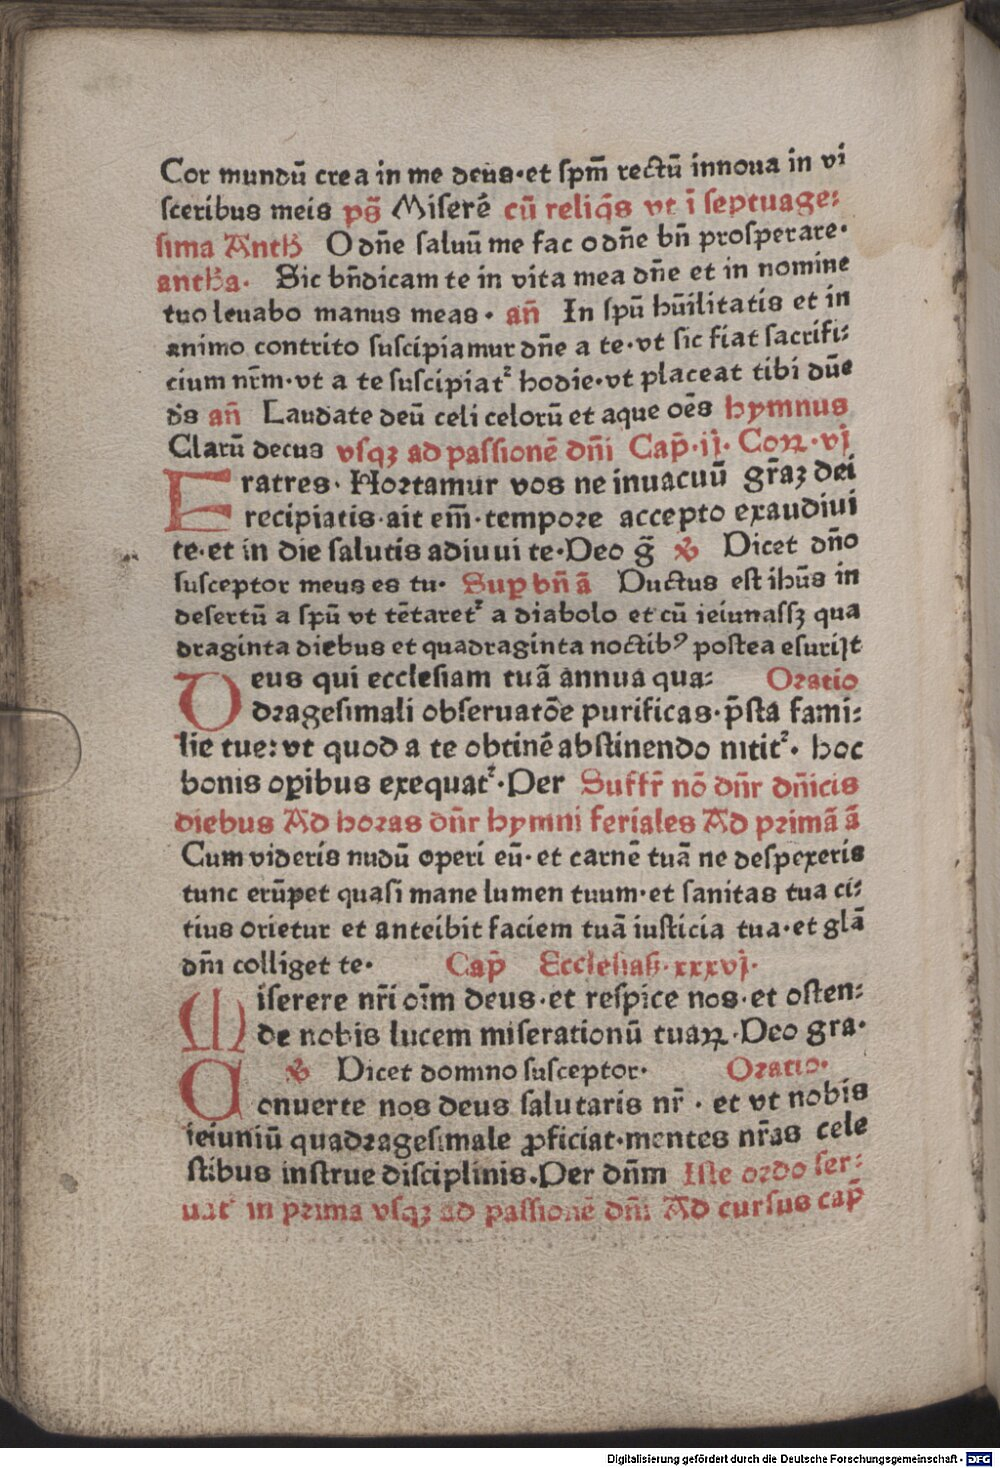 Cor mundū crea in me deus·et spm̄ rectū innoua in vi
sceribus meis ps̄ Miserē cū reliq̄s vt ī septuage:
sima Anth O dn̄e saluū me fac o dn̄e bn̄ prosperare·
antha· Sic bn̄dicam te in vita mea dn̄e et in nomine
tuo leuabo manus meas· an̄ In spū hūilitatis et in
animo contrito suscipiamur dn̄e a te·vt sic fiat sacrifi:
cium nr̄m·vt a te suscipiatᷣ hodie·vt placeat tibi dūe
ds̄ an̄ Laudate deū celi celorū et aque oēs hymnus
Clarū decus vsqꝫ ad passionē dn̄i Cap̄·ij· Coꝝ·vj
Fratres· Hortamur vos ne inuacuū gr̄aꝫ dei
recipiatis·ait em̄·tempore accepto exaudiui
te·et in die salutis adiuui te·Deo ḡ ꝟ Dicet dn̄o
susceptor meus es tu· Suꝑ bn̄ ā Ductus est ihūs in
desertū a spū vt tētaretᷣ a diabolo et cū ieiunassꝫ qua
draginta diebus et quadraginta noctibꝰ postea esurijt
Deus qui ecclesiam tuā annua qua: Oratio
dragesimali obseruatōe purificas·p̄sta fami:
lie tue:vt quod a te obtinē abstinendo nititᷣ· hoc
bonis oꝑibus exequatᷣ·Per Suffr̄ nō dn̄r dn̄icis
diebus Ad horas dn̄r hymni feriales Ad primā ā
Cum videris nudū operi eū·et carnē tuā ne despexeris
tunc erūpet quasi mane lumen tuum·et sanitas tua ci:
tius orietur et anteibit faciem tuā iusticia tua·et glā
dn̄i colliget te· Cap̄ Ecclesiaß·xxxvj·
Miserere nr̄i oīm deus·et respice nos·et osten:
de nobis lucem miserationū tuaꝝ·Deo gra·
ꝟ Dicet domino susceptor· Oratio·
Conuerte nos deus salutaris nr̄·et vt nobis
ieiuniū quadragesimale ꝓficiat·mentes nr̄as cele
stibus instrue disciplinis.Per dn̄m Iste ordo ser:
uatᷣ in prima vsqꝫ ad passionē dn̄i Ad cursus cap̄
Digitalisierung gefördert durch die Deutsche Forschungsgemeinschaft - DFG